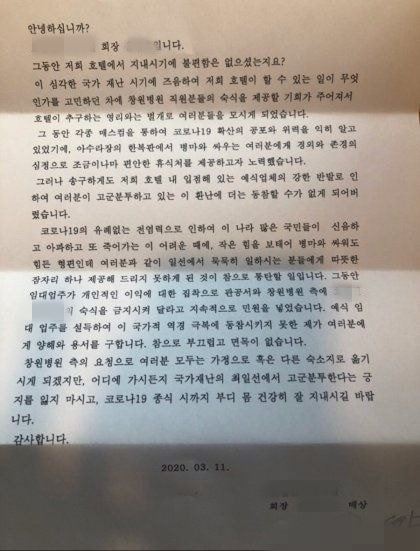 안녕하십니까?
회장 입니다.
그동안 저희 호텔에서 지내시기에 불편함은 없으셨는지요?
이 심각한 국가 재난 시기에 즈음하여 저희 호텔이 할 수 있는 일이 무엇
인가를 고민하던 차에 창원병원 직원분들의 숙식을 제공할 기회가 주어져서
호텔이 추구하는 영리와는 별개로 여러분들을 모시게 되었습니다.
그 동안 각종 매스컴을 통하여 코로나19 확산의 공포와 위력을 익히 알고
있었기에, 아수라장의 한복판에서 병마와 싸우는 여러분에게 경의와 존경의
심정으로 조금이나마 편안한 휴식처를 제공하고자 노력했습니다.
그러나 송구하게도 저희 호텔 내 입점해 있는 예식업체의 강한 반발로 인
하여 여러분이 고군분투하고 있는 이 환난에 더는 동참할 수가 없게 되어버
렸습니다.
코로나19의 유례없는 전염력으로 인하여 이 나라 많은 국민들이 신음하
고 아파하고 또 죽어가는 이 어려운 때에, 작은 힘을 보태어 병마와 싸워도
힘든 형편인데 여러분과 같이 일선에서 묵묵히 일하시는 분들에게 따뜻한
잠자리 하나 제공해 드리지 못하게 된 것이 참으로 통탄할 일입니다. 그동안
임대업주가 개인적인 이익에 대한 집착으로 관공서와 창원병원 측에
의 숙식을 금지시켜 달라고 지속적으로 민원을 넣었습니다. 예식 임
대 업주를 설득하여 이 국가적 역경 극복에 동참시키지 못한 제가 여러분에
게 양해와 용서를 구합니다. 참으로 부끄럽고 면목이 없습니다.
창원병원 측의 요청으로 여러분 모두는 가정으로 혹은 다른 숙소지로 옮기
시게 되겠지만, 어디에 가시든지 국가재난의 최일선에서 고군분투한다는 긍
지를 잃지 마시고, 코로나19 종식 시까지 부디 몸 건강히 잘 지내시길 바랍
니다.
감사합니다.
2020. 03. 11.
회장 배상